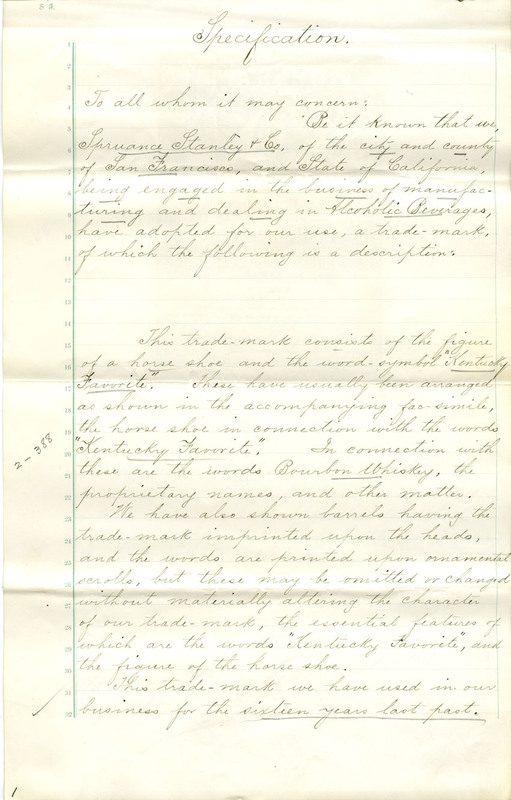 Specification.
To all whom it may concern:
Be it known that we,
Spruance Stanley & Co, of the city and county
of San Francisco, and State of California,
being engaged in the business of manufac-
turing and dealing in Alcoholic Beverages,
have adopted for our use, a trade-mark,
of which the following is a description:
This trade-mark consists of the figure
of a horse shoe and the word-symbol "Kentucky
Favorite". These have usually been arranged
as shown in the accompanying fac-simile,
the horse shoe in connection with the words
"Kentucky Favorite". In connection with
these are the words Bourbon Whiskey, the
proprietary names, and other matter.
We have also shown barrels having the
trade-mark imprinted upon the heads,
and the words are printed upon ornamental
scrolls, but these may be omitted or changed
without materially altering the character
of our trade-mark, the essential features of
which are the words "Kentucky Favorite", and
the figure of the horse shoe.
This trade-mark we have used in our
business for the sixteen years last past.
2-388
1
1
2
3
4
5
6
7
8
9
10
11
12
13
14
15
16
17
18
19
20
21
22
23
24
25
26
27
28
29
30
31
32